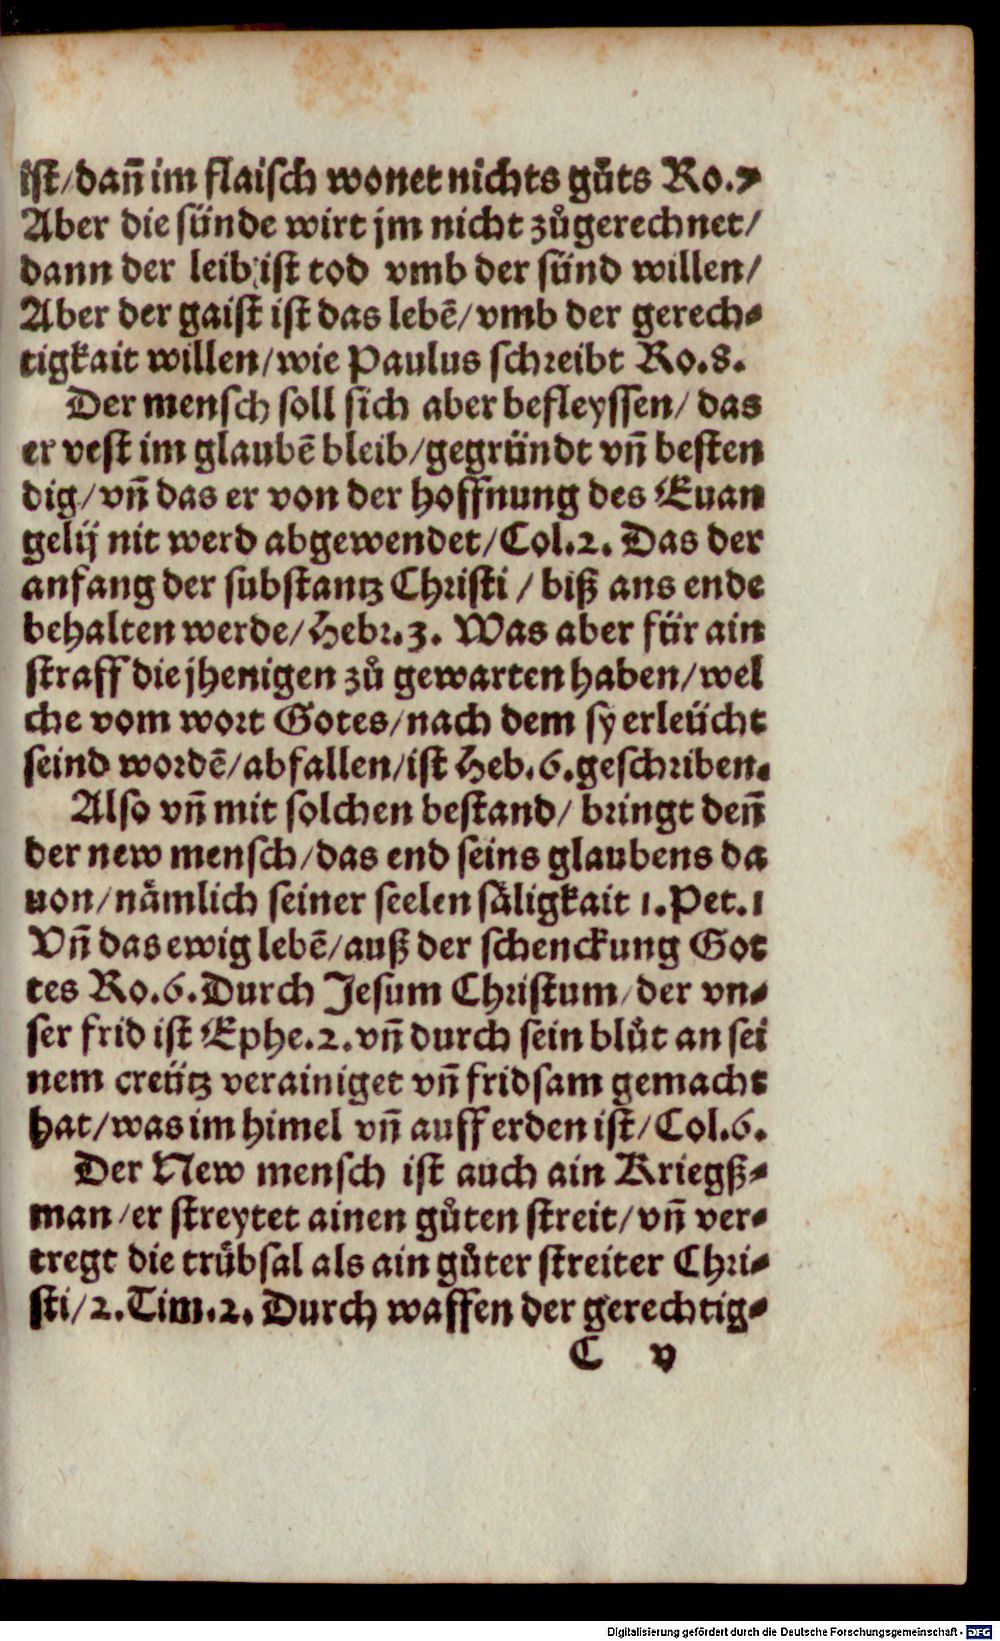 ist/ dañ im flaisch wonet nichts gůts Ro.7
Aber die sünde wirt jm nicht zůgerechnet/
dann der leib ist tod vmb der sünd willen/
Aber der gaist ist das lebē/ vmb der gerech-
tigkait willen/ wie Paulus schreibt Ro.8.
Der mensch soll sich aber befleyssen/ das
er vest im glaubē bleib/ gegründt vñ besten
dig/ vñ das er von der hoffnung des Euan
gelij nit werd abgewendet/ Col.2. Das der
anfang der substantz Christi / biß ans ende
behalten werde/ Hebr.3. Was aber für ain
straff die jhenigen zů gewarten haben/ wel
che vom wort Gotes/ nach dem sy erleücht
seind wordē/ abfallen/ ist Heb.6. geschriben.
Also vñ mit solchen bestand/ bringt deñ
der new mensch/ das end seins glaubens da
uon/ nämlich seiner seelen säligkait 1.Pet.1
Vñ das ewig lebē/ auß der schenckung Got
tes Ro.6. Durch Jesum Christum/ der vn-
ser frid ist Ephe.2. vñ durch sein blůt an sei
nem creütz verainiget vñ fridsam gemacht
hat/ was im himel vñ auff erden ist/ Col.6.
Der New mensch ist auch ain Kriegß-
man/ er streytet ainen gůten streit/ vñ ver-
tregt die trübsal als ain gůter streiter Chri-
sti/ 2.Tim.2. Durch waffen der gerechtig-
C v
Digitalisierung gefördert durch die Deutsche Forschungsgemeinschaft - DFG